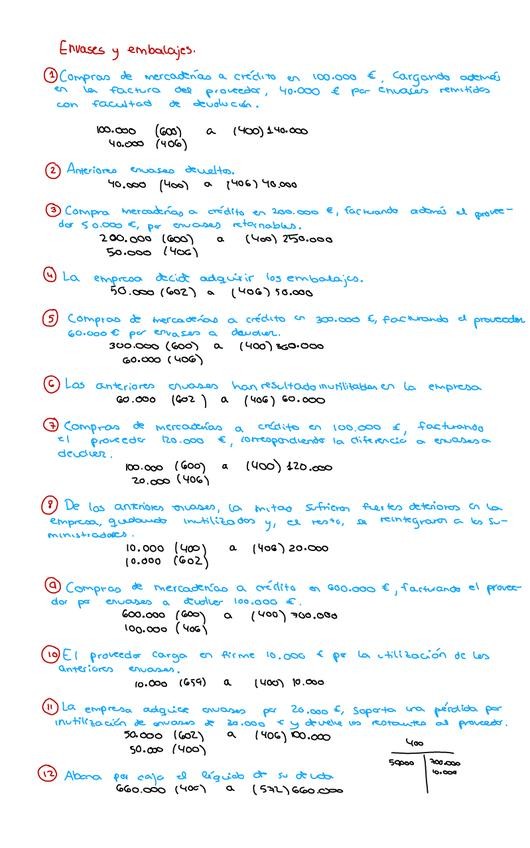 Envases y embalajes.
① Compras de mercaderías a crédito en 100.000 €, cargando además
en la factura del proveedor, 40.000 € por envases remitidos
con facultad de devolución.
100.000 (600) a (400) 140.000
40.000 (406)
② Anteriores envases devueltos.
40.000 (400) a (406) 40.000
③ Compra mercaderías a crédito en 200.000 €, facturando además el provee-
dor 50.000 €, por envases retornables.
200.000 (600) a (400) 250.000
50.000 (406)
④ La empresa decide adquirir los embalajes.
50.000 (602) a (406) 50.000
⑤ Compras de mercaderías a crédito en 300.000 €, facturando el proveedor
60.000 € por envases a devolver.
300.000 (600) a (400) 360.000
60.000 (406)
⑥ Los anteriores envases han resultado inutilizables en la empresa
60.000 (602) a (406) 60.000
⑦ Compras de mercaderías a crédito en 100.000 €, facturando
el proveedor 120.000 €, correspondiendo la diferencia a envases a
devolver.
100.000 (600) a (400) 120.000
20.000 (406)
⑧ De los anteriores envases, la mitad sufrieron fuertes deterioros en la
empresa, quedando inutilizados y, el resto, se reintegraron a los su-
ministradores.
10.000 (400) a (406) 20.000
10.000 (602)
⑨ Compras de mercaderías a crédito en 600.000 €, facturando el provee-
dor por envases a devolver 100.000 €.
600.000 (600) a (400) 700.000
100.000 (406)
⑩ El proveedor carga en firme 10.000 € por la utilización de los
anteriores envases.
10.000 (659) a (400) 10.000
⑪ La empresa adquiere envases por 20.000 €, soporta una pérdida por
inutilización de envases de 30.000 € y devuelve los restantes al proveedor.
50.000 (602) a (406) 100.000
50.000 (400)
400
50000 700.000
10.000
⑫ Abona por caja el líquido de su deuda
660.000 (400) a (572) 660.000